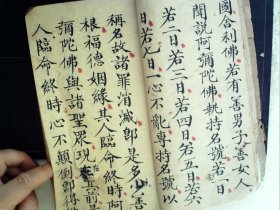 國舍利佛若有善男子善女人
聞說阿彌陀佛執持名號若一日
若二日若三日若四日若五日若六
日若七日一心不亂專持名號以
稱名故諸罪消滅即是多少善
根福德姻緣其人臨命終時阿
彌陀佛與諸聖眾現在前是
人臨命終時心不顛倒即得